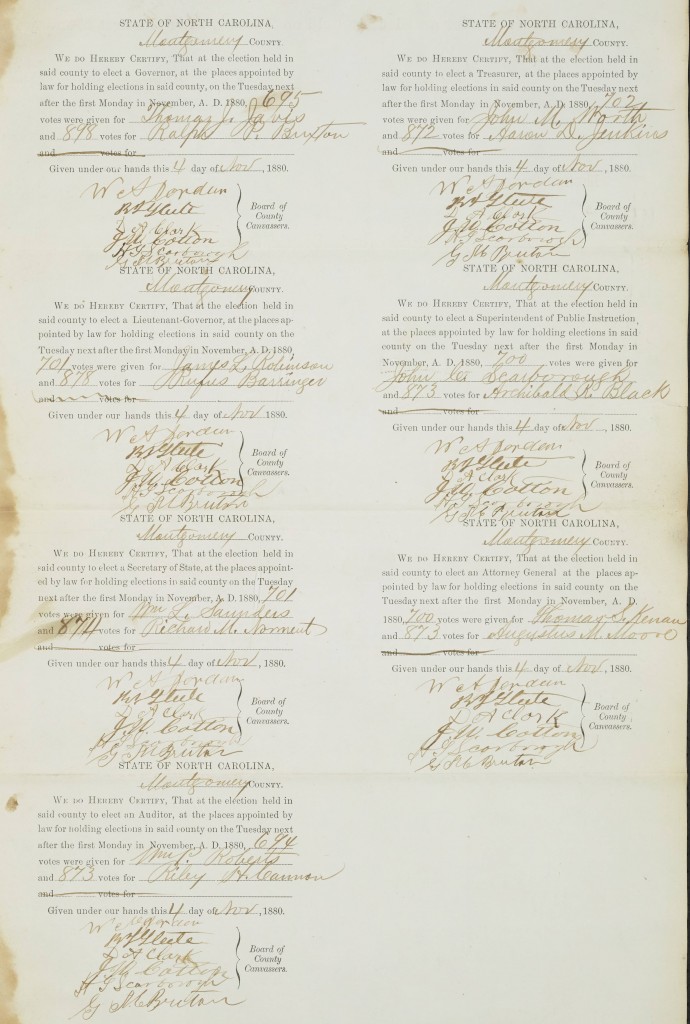 STATE OF NORTH CAROLINA,
Montgomery COUNTY.
WE DO HEREBY CERTIFY, That at the election held in
said county to elect a Governor, at the places appointed by
law for holding elections in said county, on the Tuesday next
after the first Monday in November, A. D. 1880, 695
votes were given for Thomas J. Jarvis
and 898 votes for Ralph P. Buxton
and votes for
Given under our hands this 4 day of Nov, 1880.
W A Jordan
D. A. Clark
J. W. Cotton
H T Scarborough
G M Bruton
Board of
County
Canvassers.
STATE OF NORTH CAROLINA,
Montgomery COUNTY.
WE DO HEREBY CERTIFY, That at the election held in
said county to elect a Lieutenant-Governor, at the places ap-
pointed by law for holding elections in said county on the
Tuesday next after the first Monday in November, A. D. 1880
701 votes were given for James L. Robinson
and 878 votes for Rufus Barringer
and votes for
Given under our hands this 4 day of Nov 1880.
W A Jordan
D A Clark
J. W. Cotton
H T Scarborough
G M Bruton
Board of
County
Canvassers.
STATE OF NORTH CAROLINA,
Montgomery COUNTY.
WE DO HEREBY CERTIFY, That at the election held in
said county to elect a Secretary of State, at the places appoint-
ed by law for holding elections in said county on the Tuesday
next after the first Monday in November, A. D. 1880, 701
votes were given for Wm L. Saunders
and 874 votes for Richard M. Norment
and votes for
Given under our hands this 4 day of Nov, 1880.
W A Jordan
D A Clark
J. W. Cotton
H T Scarborough
G M Bruton
Board of
County
Canvassers.
STATE OF NORTH CAROLINA,
Montgomery COUNTY.
WE DO HEREBY CERTIFY, That at the election held in
said county to elect an Auditor, at the places appointed by
law for holding elections in said county on the Tuesday next
after the first Monday in November, A. D. 1880, 694
votes were given for Wm P. Roberts
and 873 votes for Riley H. Cannon
and votes for
Given under our hands this 4 day of Nov, 1880.
W A Jordan
D A Clark
J W Cotton
H T Scarborough
G M Bruton
Board of
County
Canvassers.
STATE OF NORTH CAROLINA,
Montgomery COUNTY.
WE DO HEREBY CERTIFY, That at the election held in
said county to elect a Treasurer, at the places appointed by
law for holding elections in said county, on the Tuesday next
after the first Monday in November, A. D. 1880, 702
votes were given for John M. Worth
and 872 votes for Aaron D. Jenkins
and votes for
Given under our hands this 4 day of Nov, 1880.
W A Jordan
D A Clark
J. W. Cotton
H T Scarborough
G M Bruton
Board of
County
Canvassers.
STATE OF NORTH CAROLINA,
Montgomery COUNTY.
WE DO HEREBY CERTIFY, That at the election held in
said county to elect a Superintendent of Public Instruction,
at the places appointed by law for holding elections in said
county on the Tuesday next after the first Monday in
November, A. D. 1880, 700 votes were given for
John C. Scarborough
and 873 votes for Archibald R. Black
and votes for
Given under our hands this 4 day of Nov, 1880.
W A Jordan
D A Clark
J. W. Cotton
H T Scarborough
G M Bruton
Board of
County
Canvassers.
STATE OF NORTH CAROLINA,
Montgomery COUNTY.
WE DO HEREBY CERTIFY, That at the election held in
said county to elect an Attorney General at the places ap-
pointed by law for holding elections in said county on the
Tuesday next after the first Monday in November, A. D.
1880, 700 votes were given for Thomas S. Kenan
and 873 votes for Augustus M. Moore
and votes for
Given under our hands this 4 day of Nov, 1880.
W A Jordan
D A Clark
J. W. Cotton
H T Scarborough
G M Bruton
Board of
County
Canvassers.